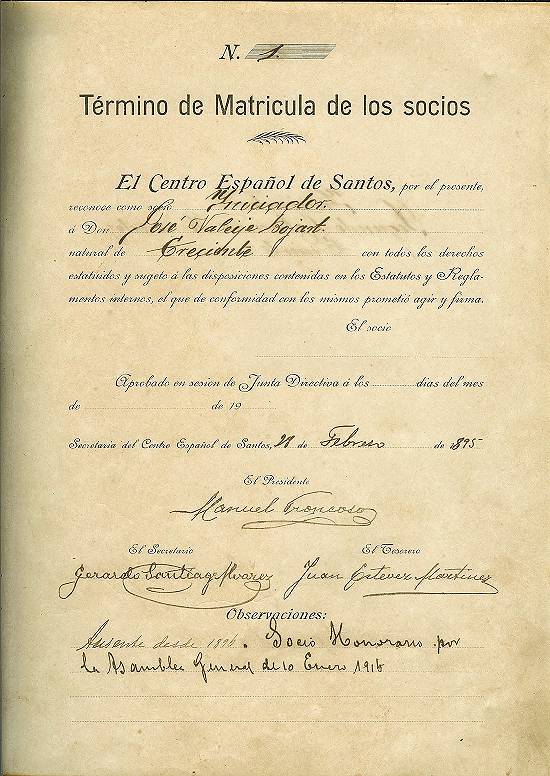 N. 1.
Término de Matricula de los socios
El Centro Español de Santos, por el presente,
reconoce como socio Iniciador.
á Don José Vallejo
natural de Creciente con todos los derechos
estatuidos y sugeto á las disposiciones contenidas en los Estatutos y Regla-
mentos internos, el que de conformidad con los mismos prometió agir y firma.
El socio
Aprobado en sesion de Junta Directiva á los dias del mes
de de 19
Secretaria del Centro Español de Santos, de Febrero de 1895
El Presidente
Manuel Troncoso
El Secretario El Tesorero
Gerardo Santiago Alvarez Juan Estevez Martinez
Observaciones:
Ausente desde Socio Honorario por
la Asamblea General de 10 Enero 1916